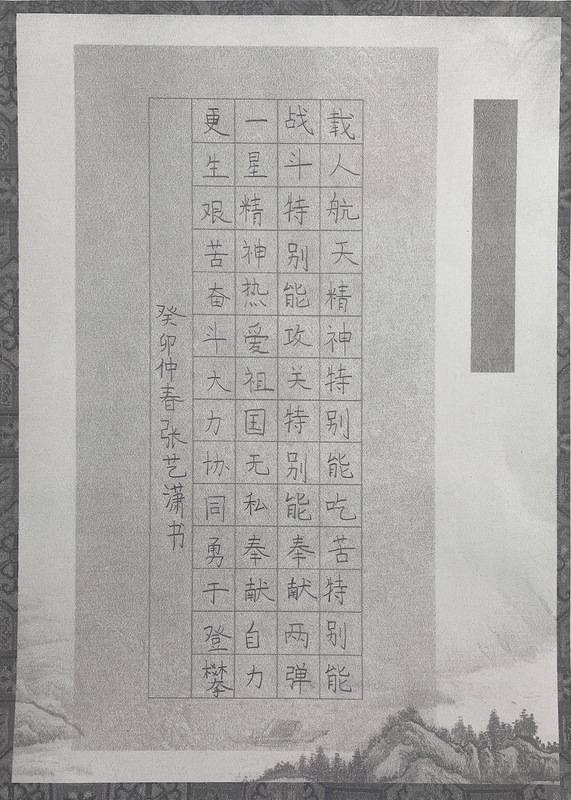 载人航天精神特别能吃苦特别能
战斗特别能攻关特别能奉献两弹
一星精神热爱祖国无私奉献自力
更生艰苦奋斗大力协同勇于登攀
癸卯仲春张艺潇书